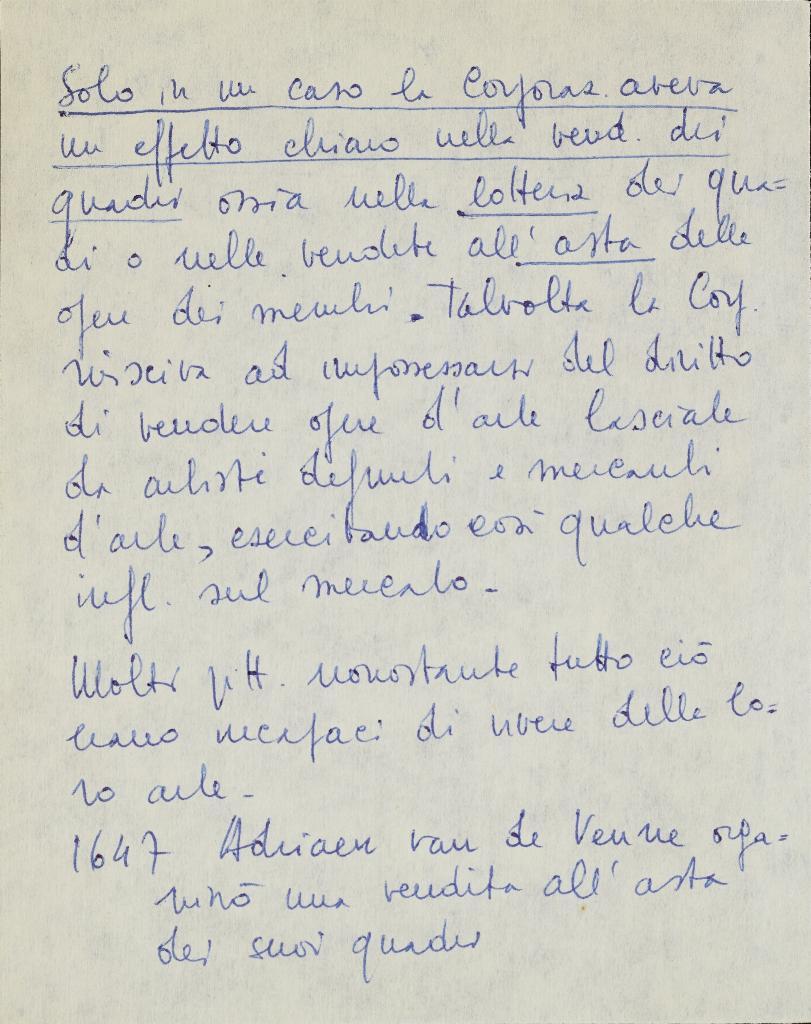 Solo in un caso la Corporaz. aveva
un effetto chiaro nella vend. dei
quadri ossia nella lotteria dei qua=
di o nelle vendite all'asta delle
opere dei membri. Talvolta la Corp.
riusciva ad impossessarsi del diritto
di vendere opere d'arte lasciate
da artisti defunti e mercanti
d'arte, esercitando così qualche
infl. sul mercato -
Molti pitt. nonostante tutto ciò
erano incapaci di vivere della lo=
ro arte -
1647 Adriaen van de Venne orga=
nizzò una vendita all'asta
dei suoi quadri